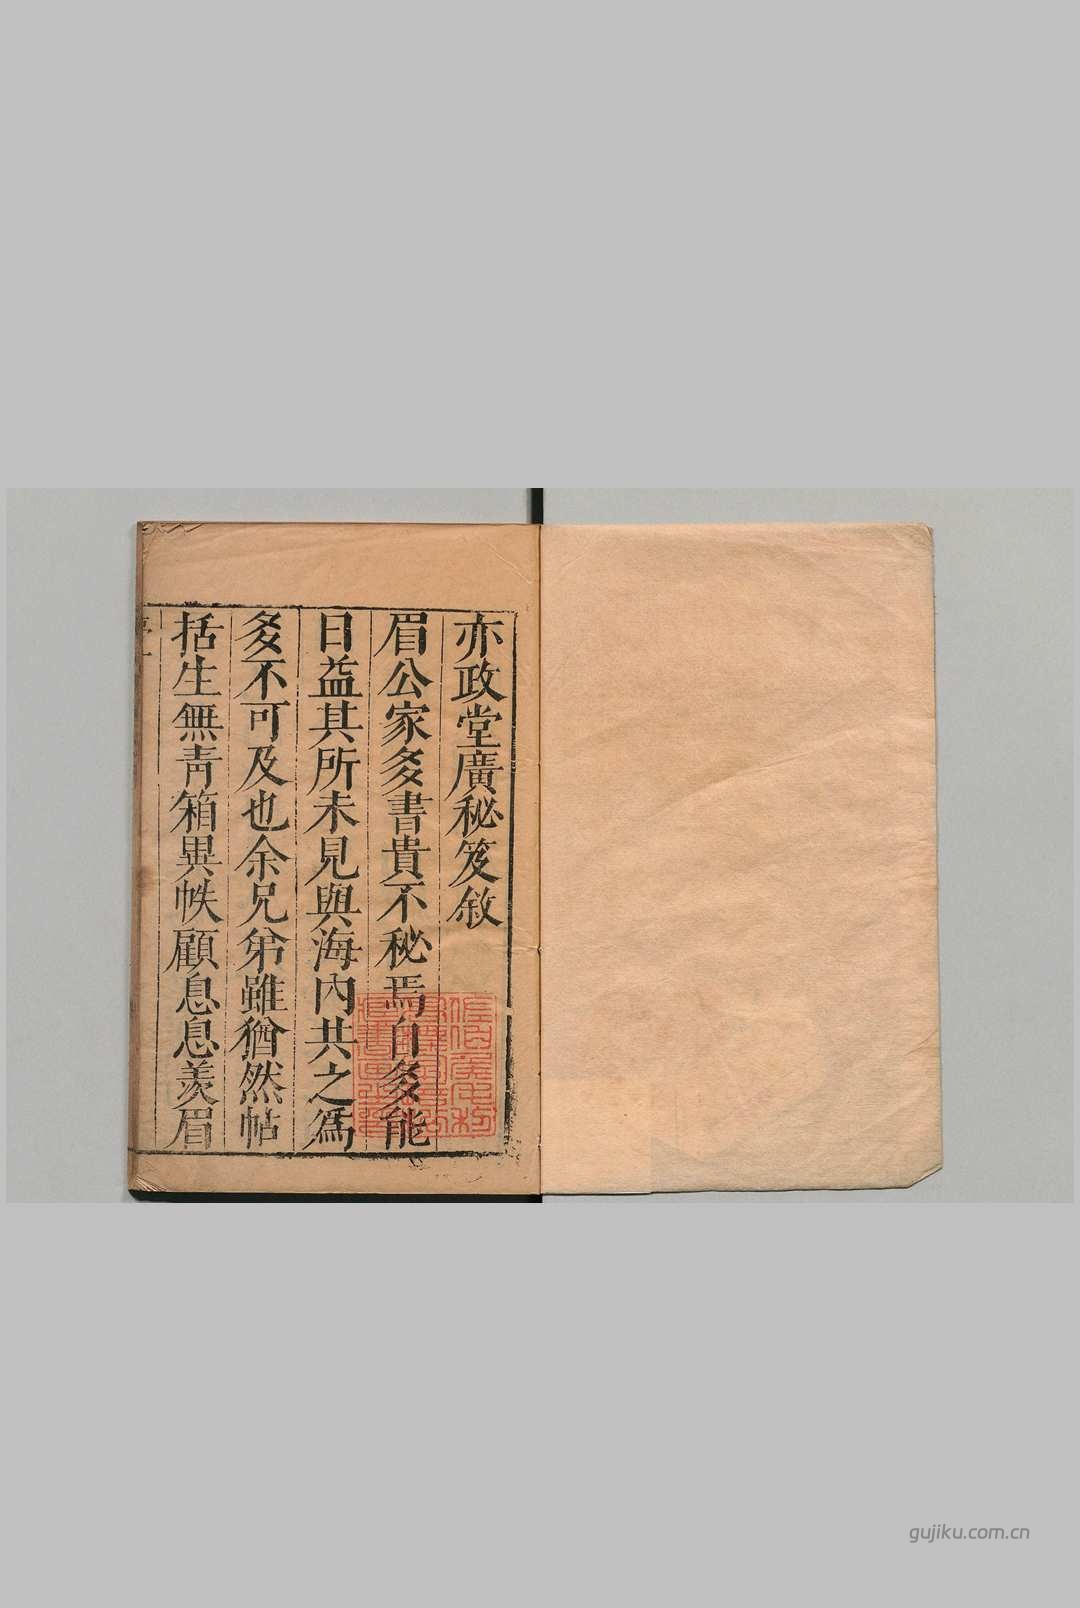 亦政堂廣秘笈敘
眉公家多書貴不秘焉自多能
日益其所未見與海內共之爲
多不可及也余兄弟雖猶然帖
括生無靑箱異帙顧息息羡眉
gujiku.com.cn